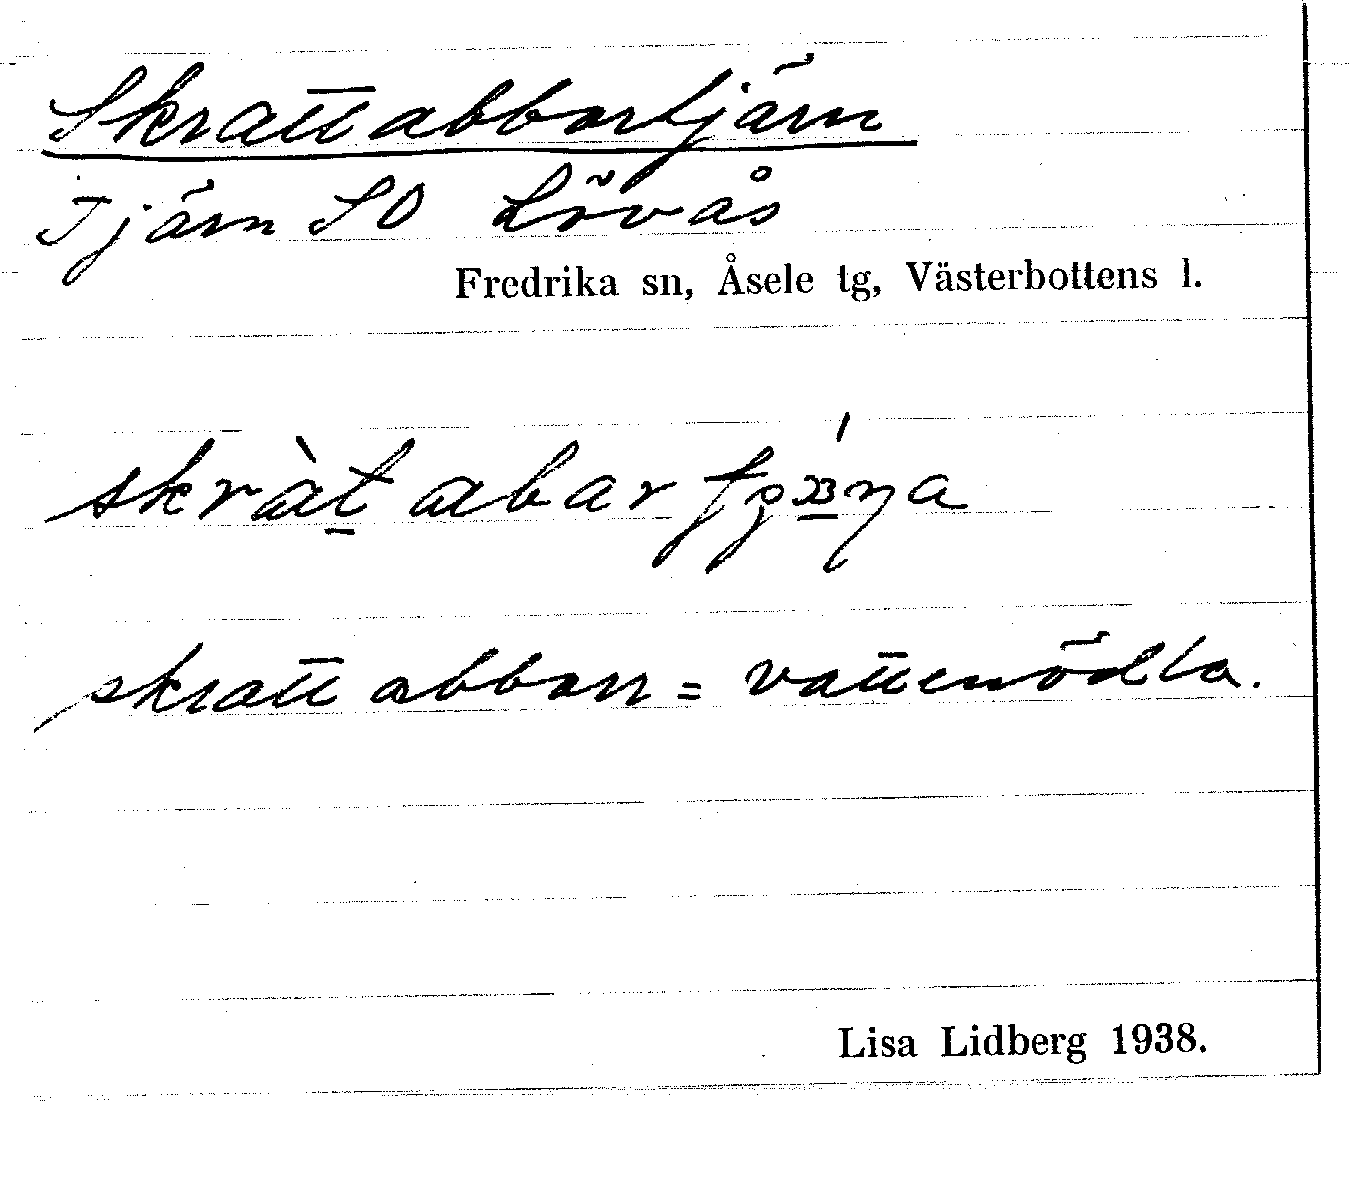 Skrattabbortjärn
Tjärn SO Lövås
Fredrika sn, Åsele tg, Västerbottens l.
skràt abar
skratt abborr = vattenödla.
Lisa Lidberg 1938.